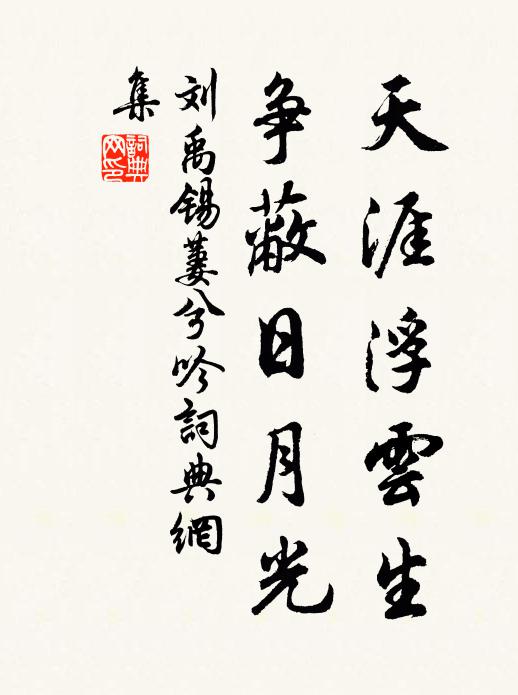 天涯浮雲生
争蔽日月光
刘禹锡萋兮吟詞典網
集
詞典
网印